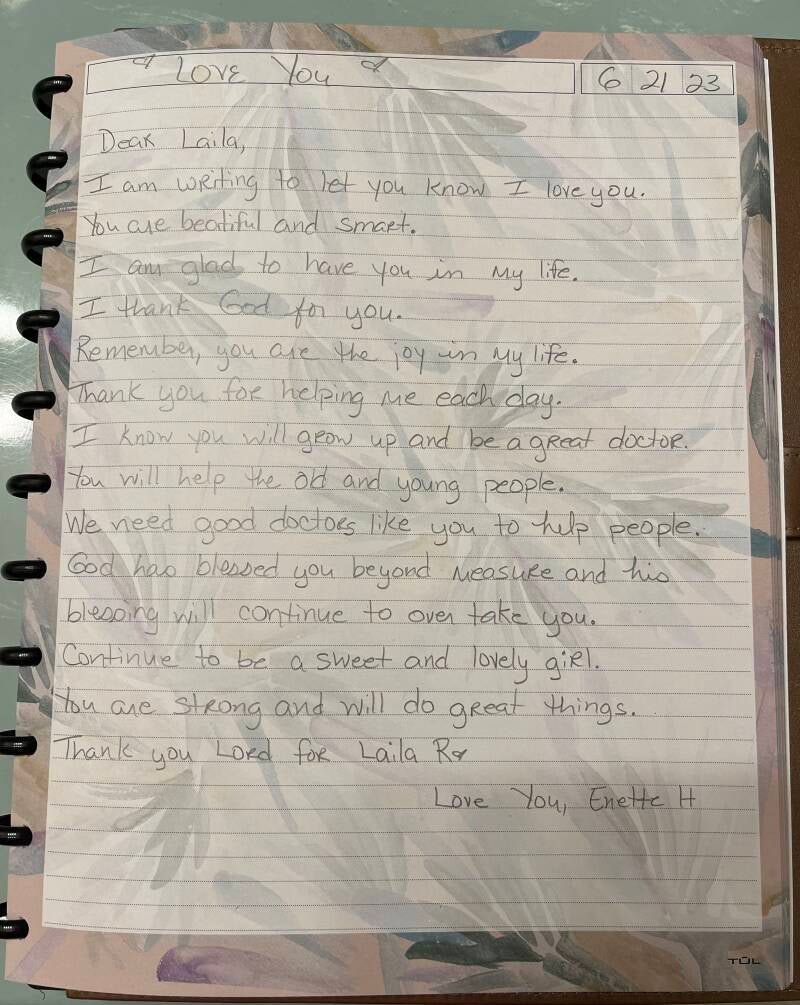 Love You
6 21 23
Dear Laila,
I am writing to let you know I love you.
You are beatiful and smart.
I am glad to have you in my life.
I thank God for you.
Remember, you are the joy in my life.
Thank you for helping me each day.
I know you will grow up and be a great doctor.
You will help the old and young people.
We need good doctors like you to help people.
God has blessed you beyond measure and his
blessing will continue to over take you.
Continue to be a sweet and lovely girl.
You are strong and will do great things.
Thank you Lord for Laila R
Love You, Enette H
TUL